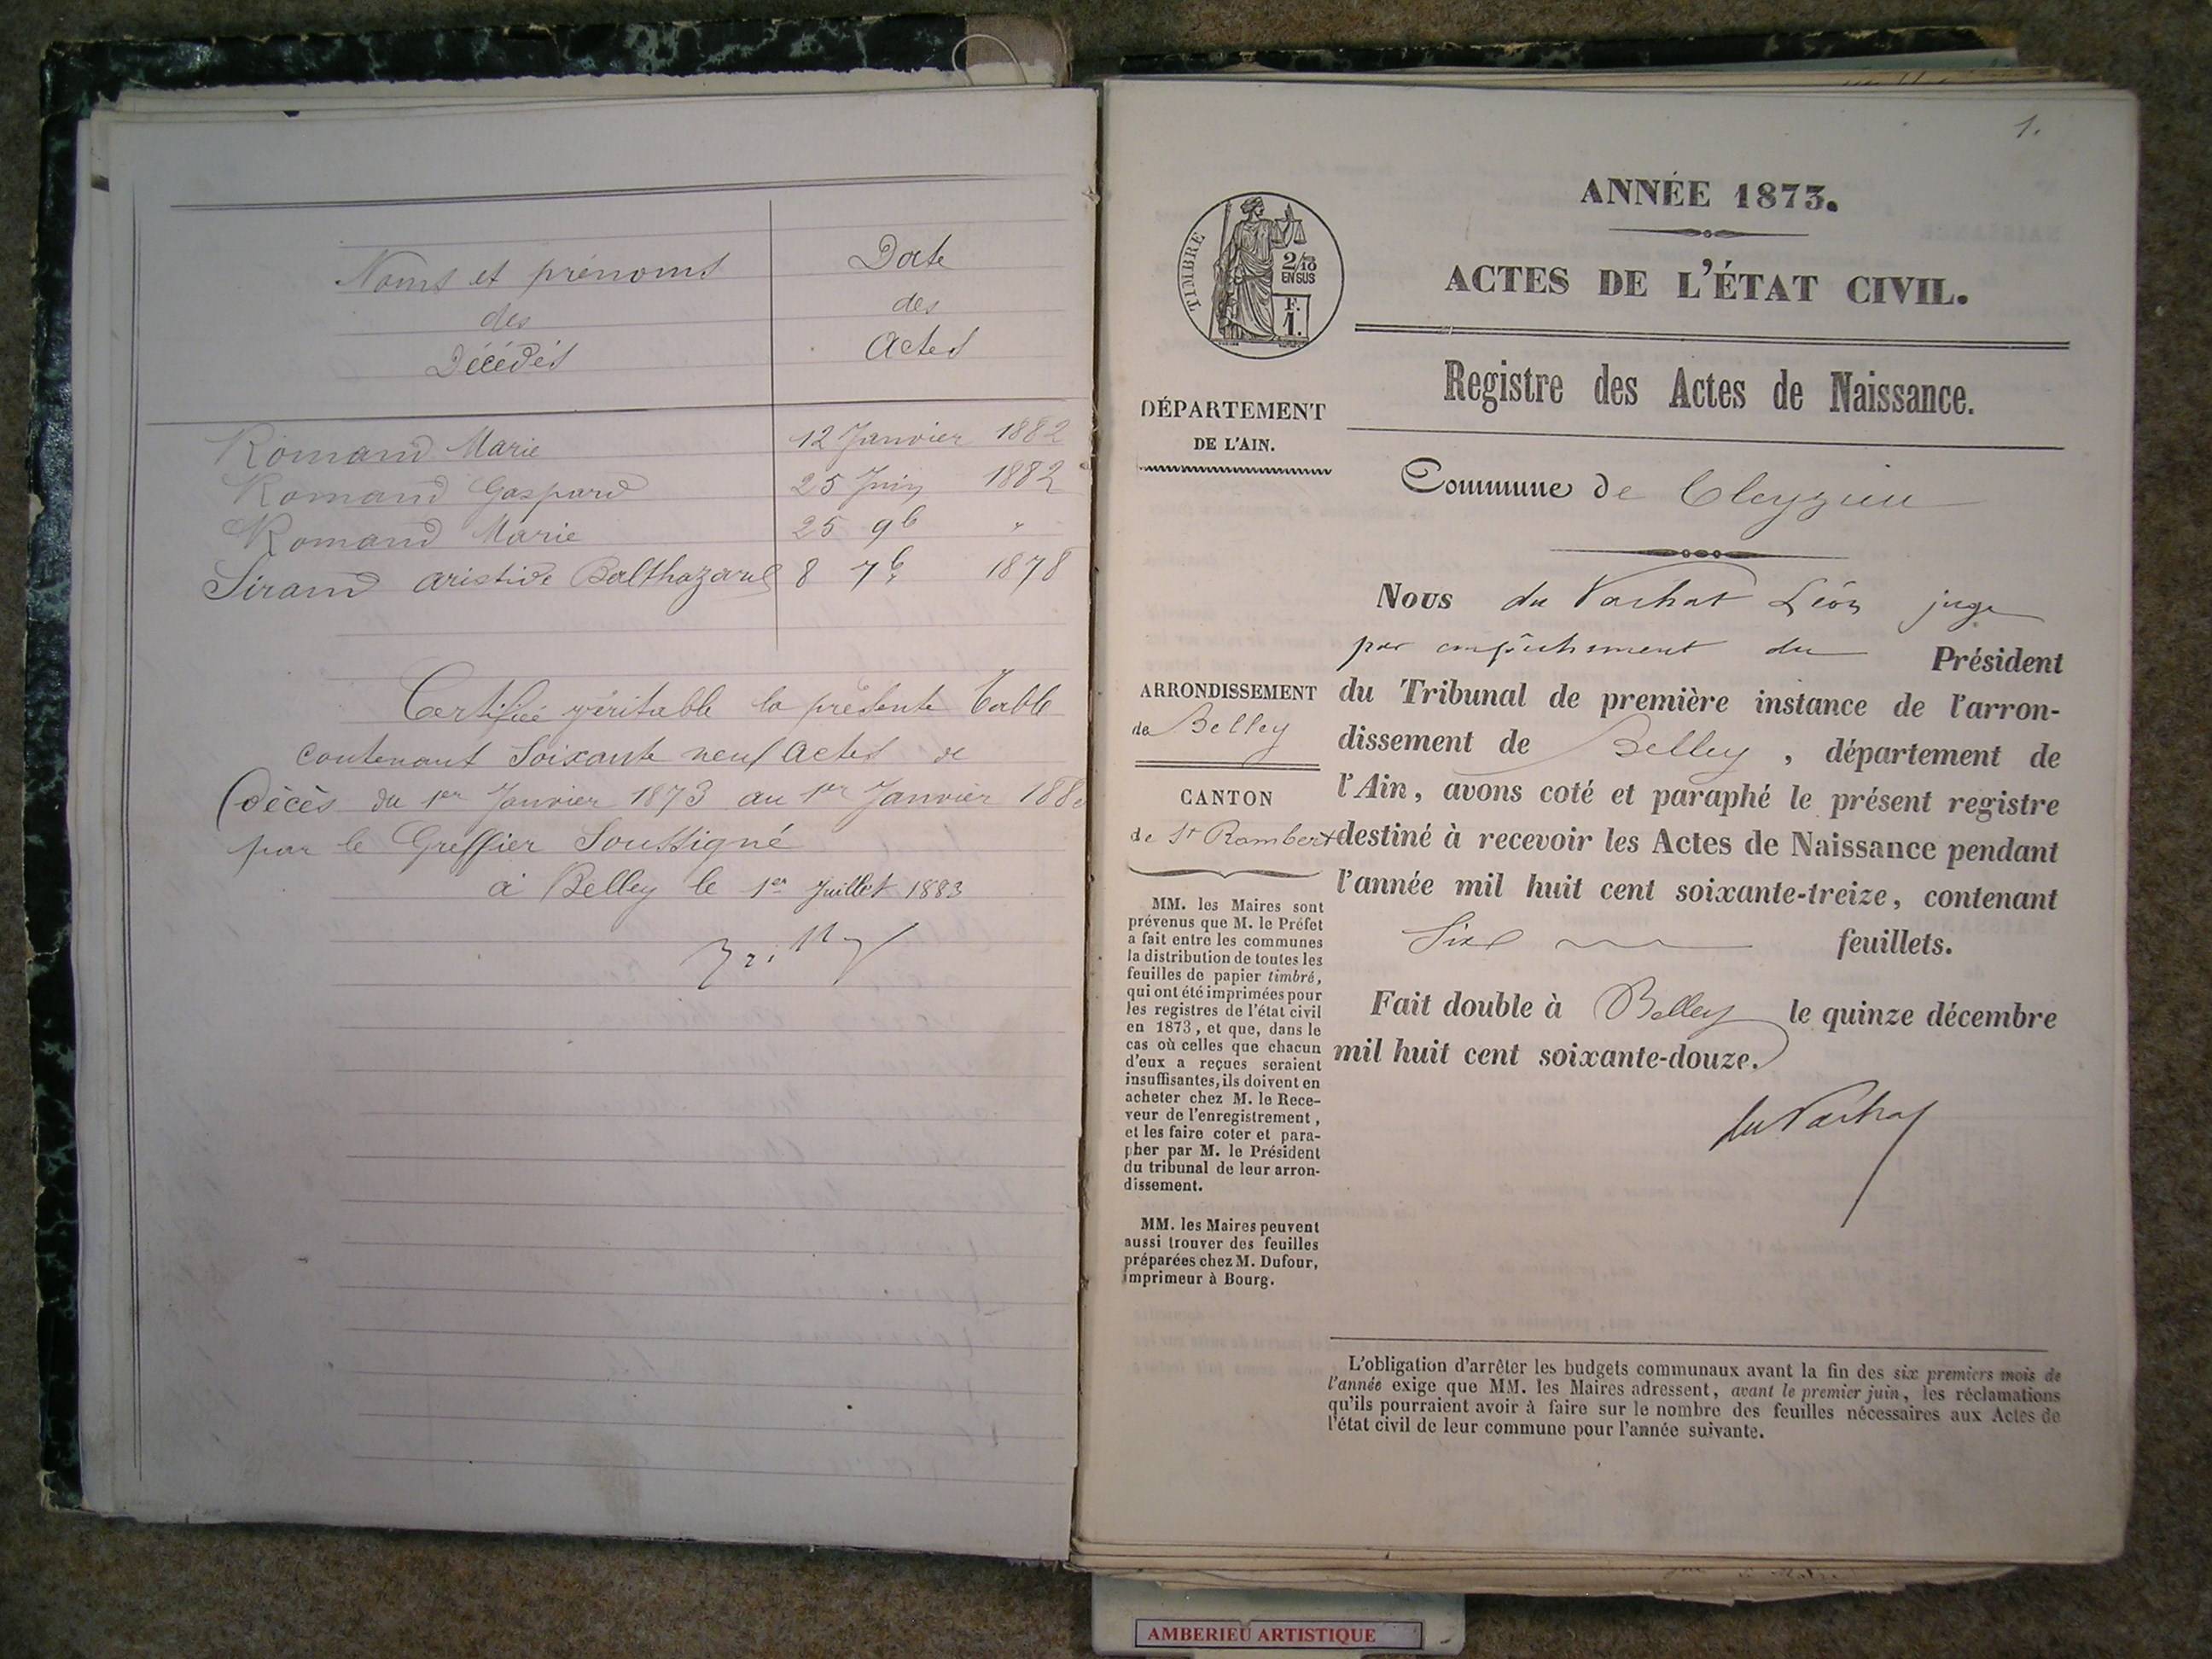 Noms et prénoms
des
Décédés
Date
des
Actes
Romand Marie 12 Janvier 1882
Romand Gaspard 25 Juin 1882
Romand Marie 25 9b "
Sirand aristide Balthazard 8 7b 1878
Certifiée véritable la présente Table
contenant Soixante neuf actes de
décès du 1er Janvier 1873 au 1er Janvier 188
par le Greffier Soussigné
à Belley le 1er Juillet 1883
1.
ANNÉE 1873.
ACTES DE L'ÉTAT CIVIL.
TIMBRE
2/10
EN SUS
F.
1.
Registre des Actes de Naissance.
DÉPARTEMENT
DE L'AIN.
Commune de Cleyzieu
Nous du Vachat Léon juge
par empêchement du Président
du Tribunal de première instance de l'arron-
dissement de Belley, département de
l'Ain, avons coté et paraphé le présent registre
destiné à recevoir les Actes de Naissance pendant
l'année mil huit cent soixante-treize, contenant
Six feuillets.
Fait double à Belley le quinze décembre
mil huit cent soixante-douze.
du Vachat
ARRONDISSEMENT
de Belley
CANTON
de St Rambert
MM. les Maires sont
prévenus que M. le Préfet
a fait entre les communes
la distribution de toutes les
feuilles de papier timbré,
qui ont été imprimées pour
les registres de l'état civil
en 1873, et que, dans le
cas où celles que chacun
d'eux a reçues seraient
insuffisantes, ils doivent en
acheter chez M. le Rece-
veur de l'enregistrement,
et les faire coter et para-
pher par M. le Président
du tribunal de leur arron-
dissement.
MM. les Maires peuvent
aussi trouver des feuilles
préparées chez M. Dufour,
imprimeur à Bourg.
L'obligation d'arrêter les budgets communaux avant la fin des six premiers mois de
l'année exige que MM. les Maires adressent, avant le premier juin, les réclamations
qu'ils pourraient avoir à faire sur le nombre des feuilles nécessaires aux Actes de
l'état civil de leur commune pour l'année suivante.
AMBERIEU ARTISTIQUE